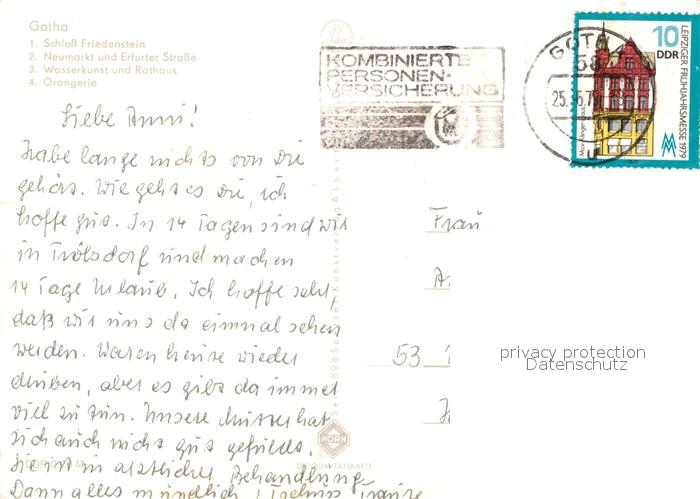 Gotha
1. Schloß Friedenstein
2. Neumarkt und Erfurter Straße
3. Wasserkunst und Rathaus
4. Orangerie
KOMBINIERTE
PERSONEN-
VERSICHERUNG
GOTHA
58
25.-6.79
10
DDR
LEIPZIGER FRÜHJAHRSMESSE 1979
Liebe Anni!
Habe lange nichts von Dir
gehört. Wie geht es Dir, ich
hoffe gut. In 14 Tagen sind wir
in Frölsdorf und machen
14 Tage Urlaub. Ich hoffe sehr,
daß wir uns da einmal sehen
werden. Waren heute wieder
drüben, aber es gibt da immer
viel zu tun. Unsere Mutter hat
sich auch nicht gut gefühlt.
Sie ist in ärztlicher Behandlung.
Dann alles mündlich
Frau
A.
53
privacy protection
Datenschutz
HORN
DIE QUALITÄTSKARTE